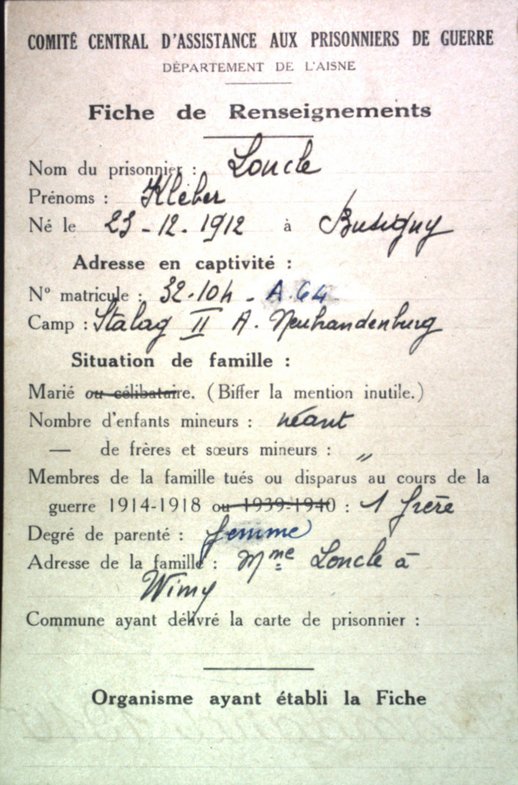 COMITÉ CENTRAL D'ASSISTANCE AUX PRISONNIERS DE GUERRE
DÉPARTEMENT DE L'AISNE
Fiche de Renseignements
Nom du prisonnier : Loncle
Prénoms : Kléber
Né le 23-12-1912 à Busigny
Adresse en captivité :
N° matricule : 32.104 - A.64
Camp : Stalag II A. Neubrandenburg
Situation de famille :
Marié ou célibataire. (Biffer la mention inutile.)
Nombre d'enfants mineurs : néant
— de frères et sœurs mineurs : "
Membres de la famille tués ou disparus au cours de la
guerre 1914-1918 ou 1939-1940 : 1 frère
Degré de parenté : femme
Adresse de la famille : Mme Loncle à
Wimy
Commune ayant délivré la carte de prisonnier :
Organisme ayant établi la Fiche